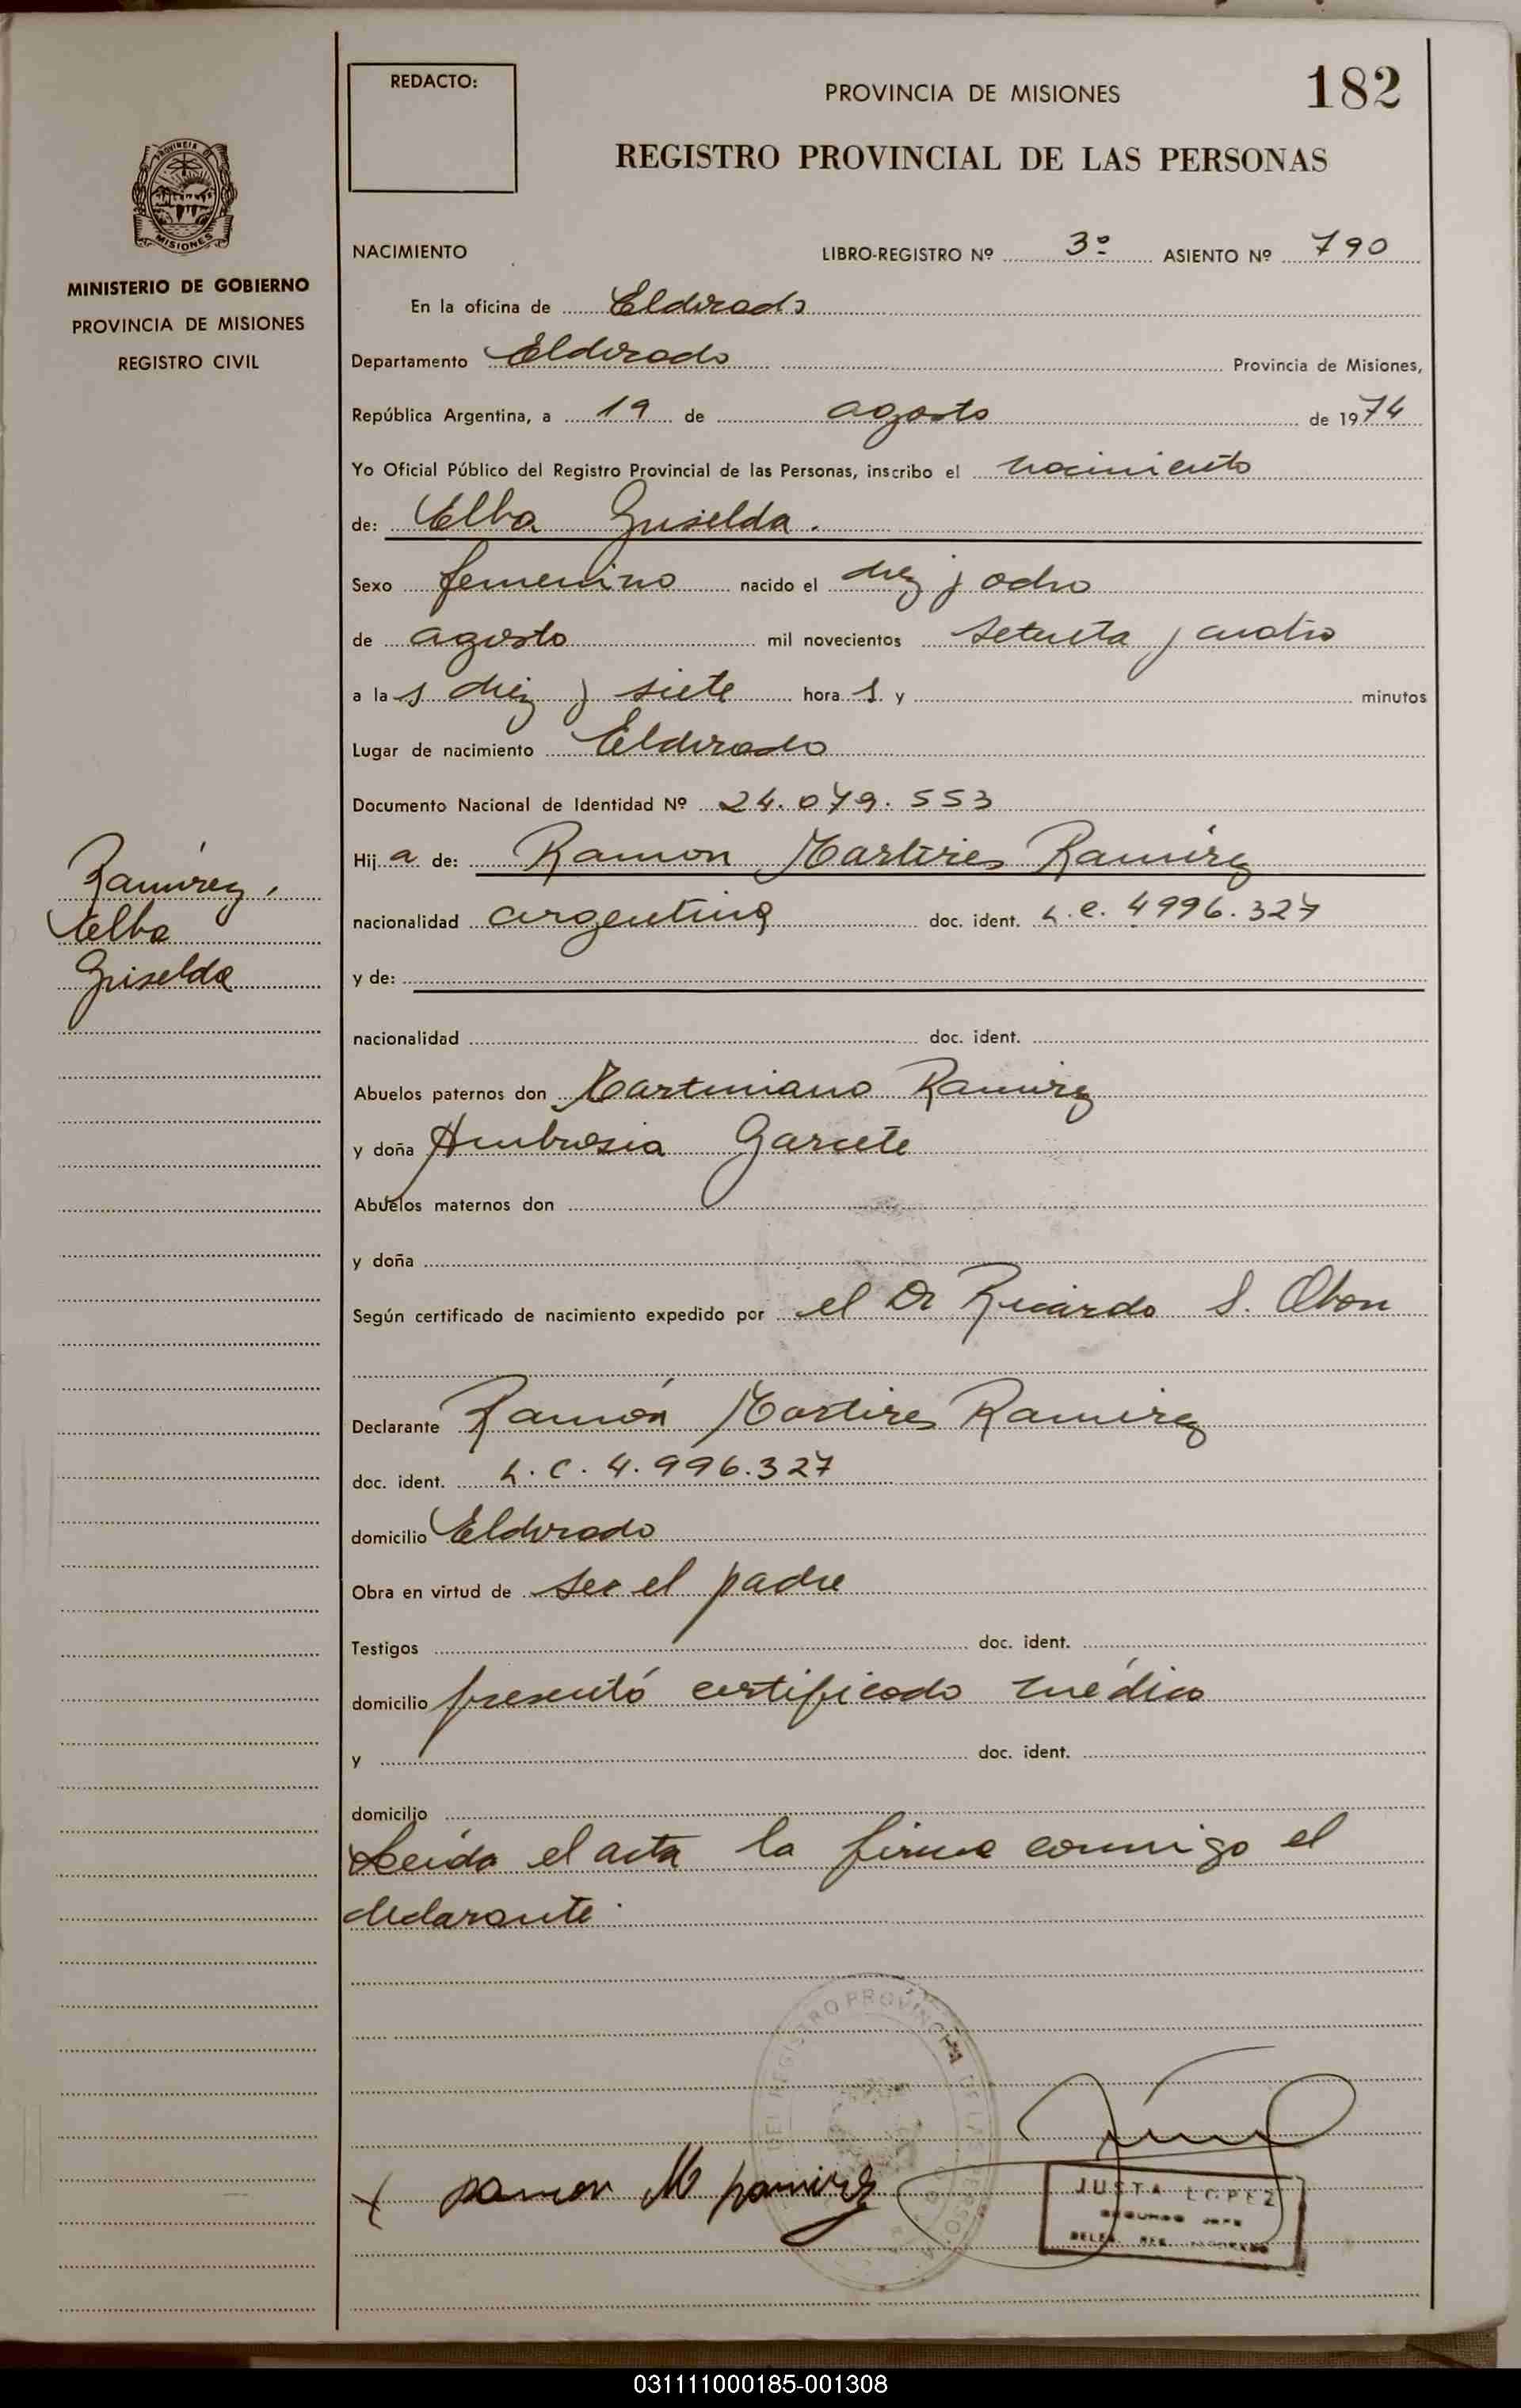 REDACTO:
PROVINCIA DE MISIONES
182
REGISTRO PROVINCIAL DE LAS PERSONAS
PROVINCIA
MISIONES
MINISTERIO DE GOBIERNO
PROVINCIA DE MISIONES
REGISTRO CIVIL
NACIMIENTO LIBRO-REGISTRO Nº 3º ASIENTO Nº 790
En la oficina de Eldorado
Departamento Eldorado Provincia de Misiones,
República Argentina, a 19 de agosto de 1974
Yo Oficial Público del Registro Provincial de las Personas, inscribo el nacimiento
de: Elba Griselda.
Sexo femenino nacido el diez y ocho
de agosto mil novecientos setenta y cuatro
a la s diez y siete hora s y minutos
Lugar de nacimiento Eldorado
Documento Nacional de Identidad Nº 24.079.553
Hij a de: Ramon Martires Ramirez
nacionalidad argentina doc. ident. L.E. 4996.327
y de:
nacionalidad doc. ident.
Abuelos paternos don Martiniano Ramirez
y doña Ambrosia Garcete
Abuelos maternos don
y doña
Según certificado de nacimiento expedido por el Dr Ricardo S. Obon
Declarante Ramón Martires Ramirez
doc. ident. L.E. 4.996.327
domicilio Eldorado
Obra en virtud de ser el padre
Testigos doc. ident.
domicilio presentó certificado médico
y doc. ident.
domicilio
Leída el acta la firma conmigo el
declarante.
Ramírez,
Elba
Griselda
REGISTRO PROVINCIAL DE LAS PERSO
Ramon M Ramirez
JUSTA LOPEZ
SEGUNDO JEFE
031111000185-001308